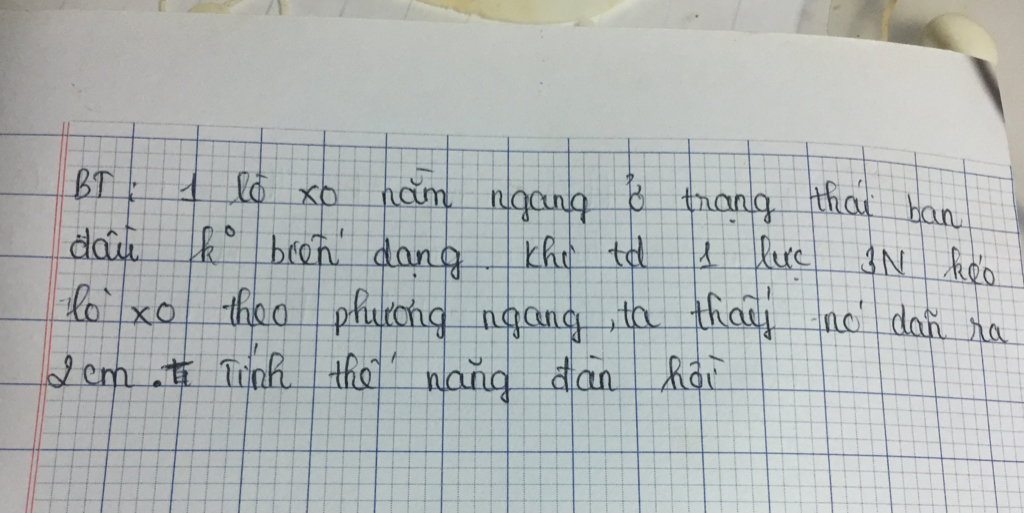 BT: 1 lò xo nằm ngang ở trạng thái ban
đầu k° biến dạng. Khi td 1 lực 3N kéo
lò xo theo phương ngang, ta thấy nó dãn ra
2 cm. Tính thế năng đàn hồi